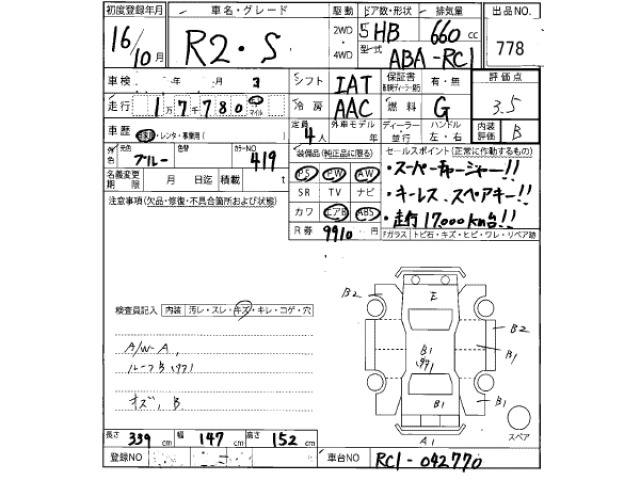 初度登録年月 車名・グレード 駆動 ドア数・形状 排気量 出品NO.
16/10月 R2・S 2WD・4WD 5HB 660cc 778
型式 ABA-RC1
車検 年 月 シフト IAT 保証書 有・無 評価点 3.5
走行 1万7千780 マイル 冷房 AAC 燃料 G
車歴 自家・レンタ・事業用( ) 定員 4人 外車モデル 年 ディーラー・並行 ハンドル 左・右 内装評価 B
外色 元色 ブルー 色替 カラーNO 419 装備品(純正品に限る) セールスポイント(正常に作動するもの)
PS PW AW ・スーパーチャージャー!!
名義変更期限 月 日迄 積載 t SR TV ナビ ・キーレス、スペアキー!!
注意事項(欠品・修復・不具合箇所および状態) カワ エアB ABS ・走行17,000km台!!
R券 9910円 Fガラス トビ石・キズ・ヒビ・ワレ・リペア跡
検査員記入 内装 汚レ・スレ・キズ・キレ・コゲ・穴
A/W A,
ルーフB
B
E
B2
B2
B1
B1
B1
B1
A1
スペア
長さ 339cm 幅 147cm 高さ 152cm
登録NO 車台NO RC1-042770